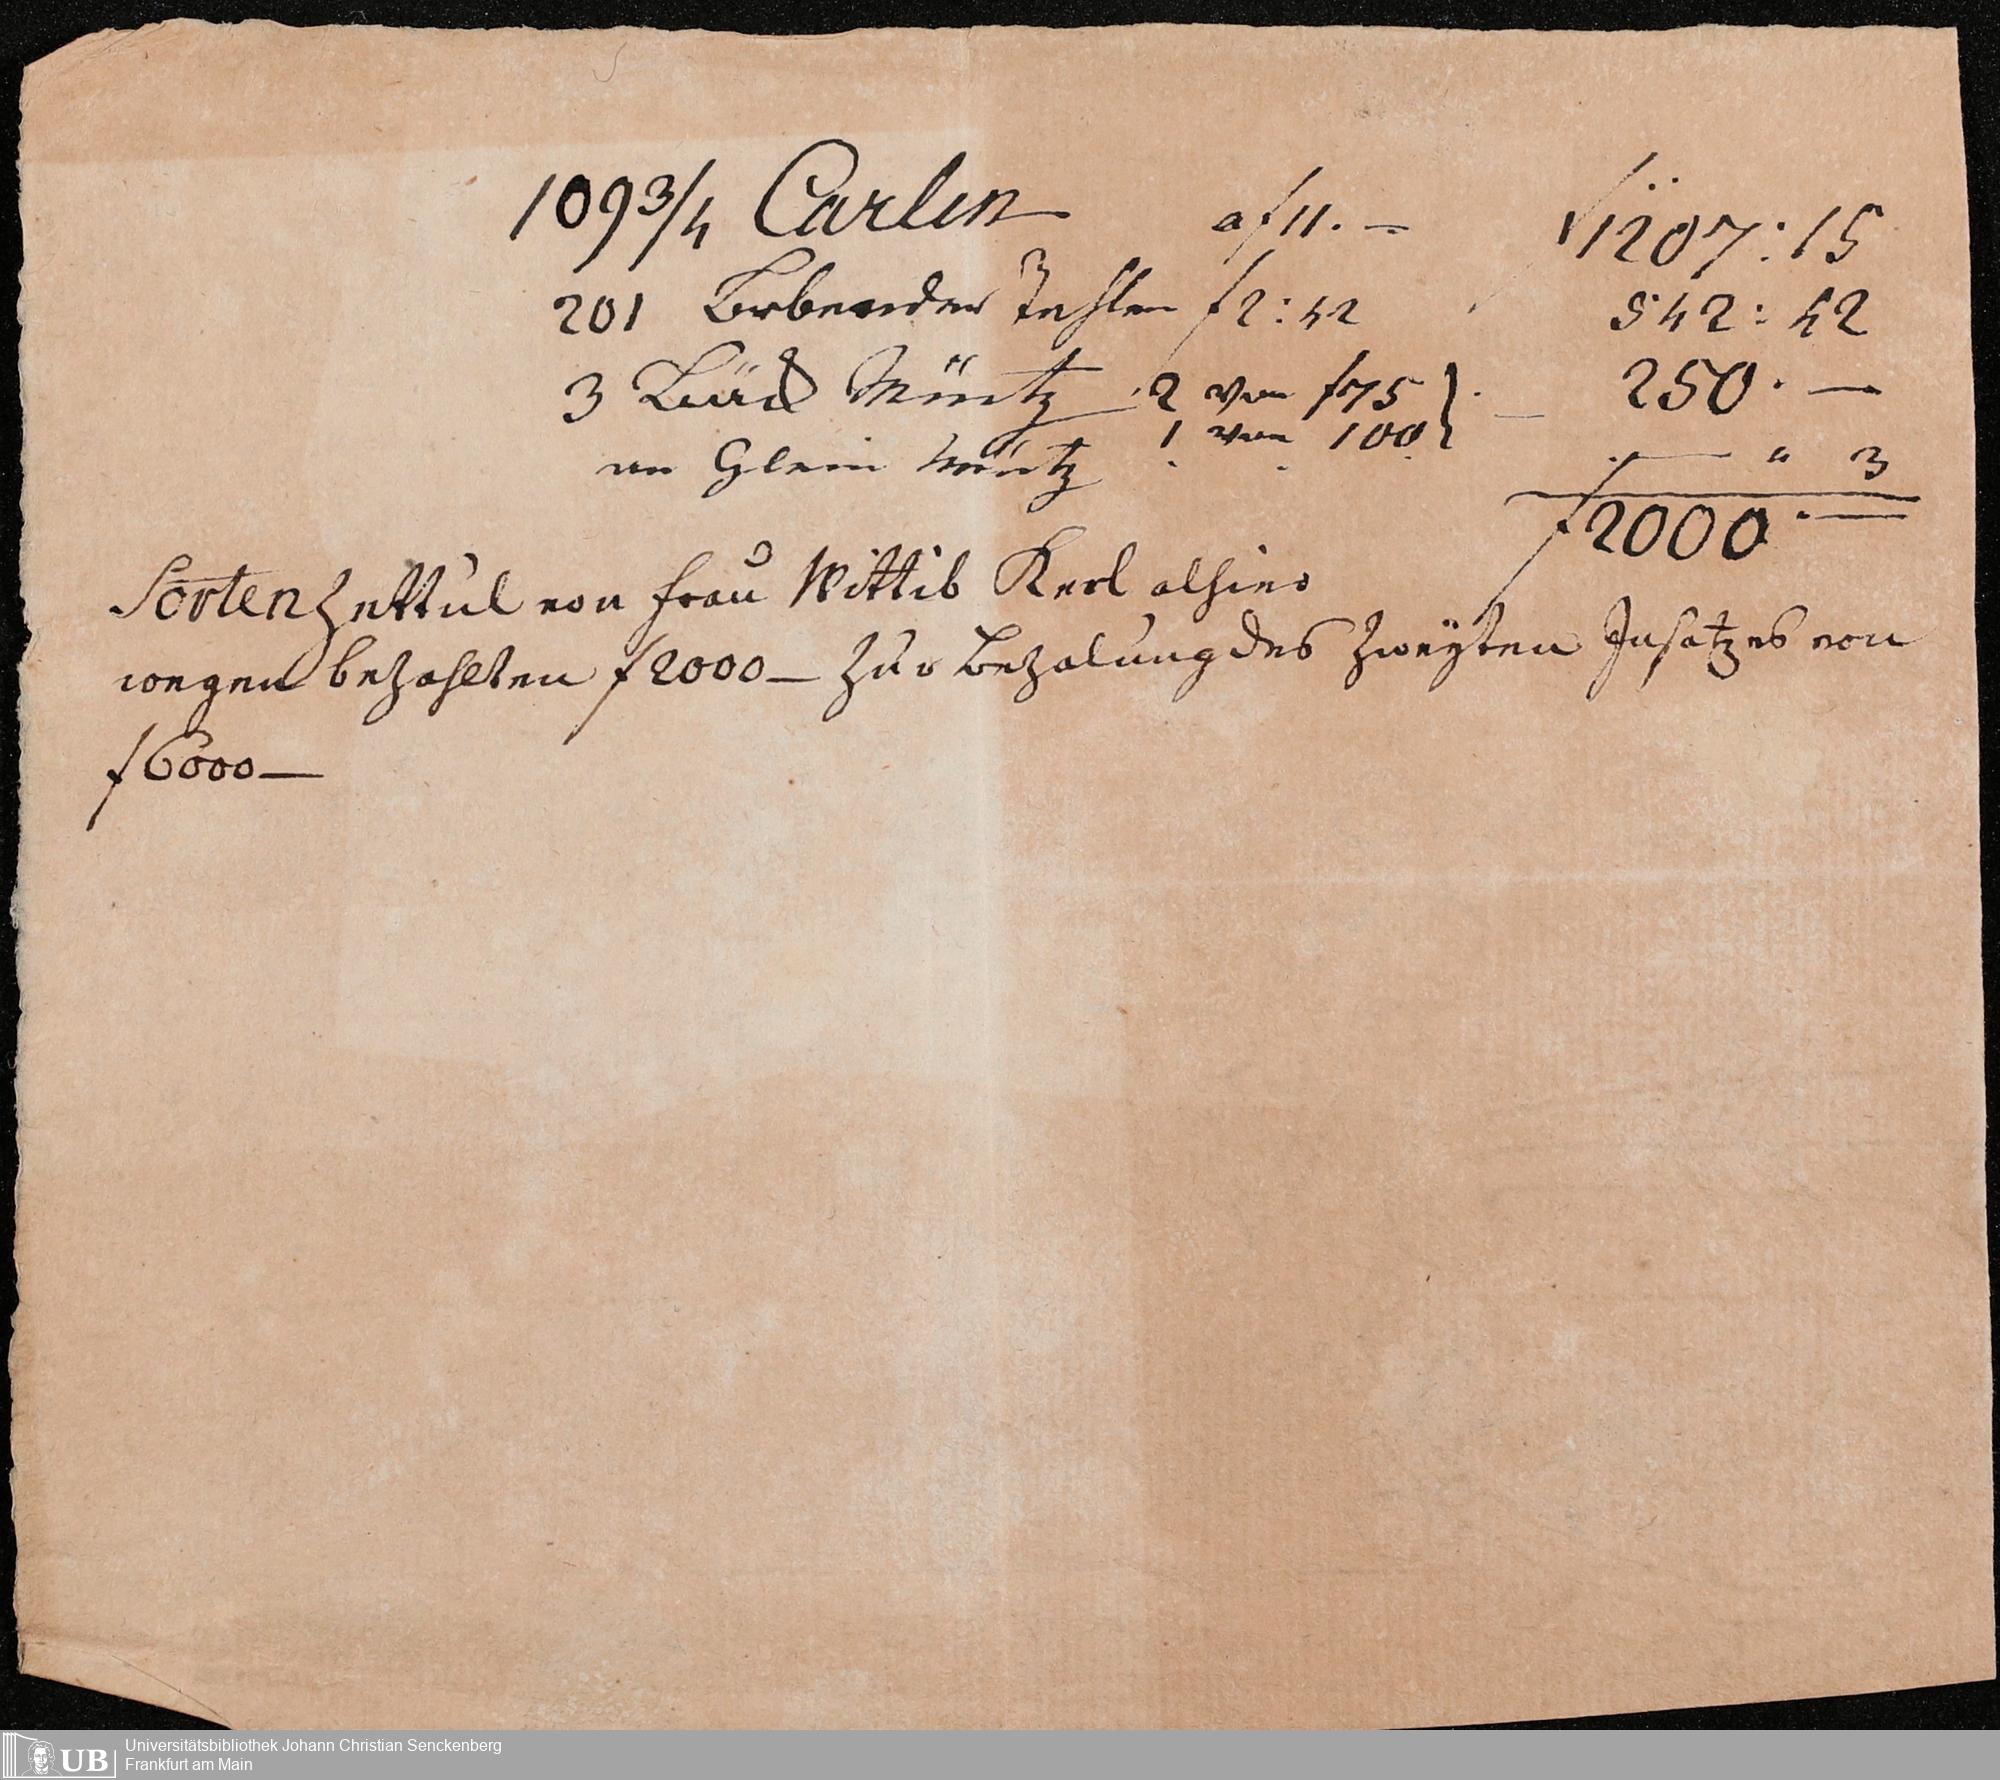 109 3/4 Carlin a f 11. — f 1207:15
201 Brbender Tahler f 2:42 542:42
3 Säck Müntz 2 von f 75 } — 250. —
1 von 100
an Glein Müntz — " 3
f 2000. —
Sorten Zettul von Frau Wittib Kerl alhier
wegen bezahlten f 2000 — zur Bezalung des zweyten Insatzes von
f 6000 —
UB Universitätsbibliothek Johann Christian Senckenberg
Frankfurt am Main